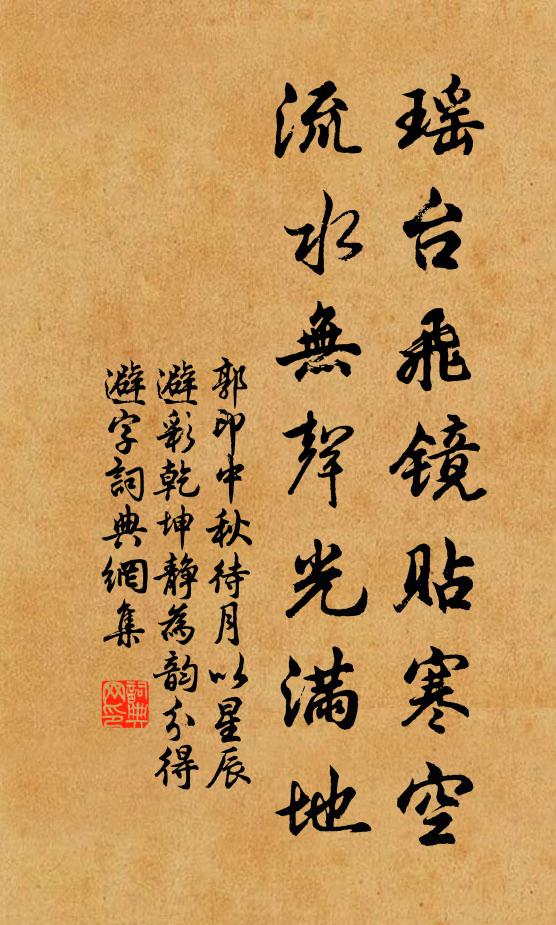 瑶台飛镜貼寒空
流水無聲光滿地
郭印中秋待月以星辰
避彩乾坤静為韵分得
避字詞典網集
詞典
网印